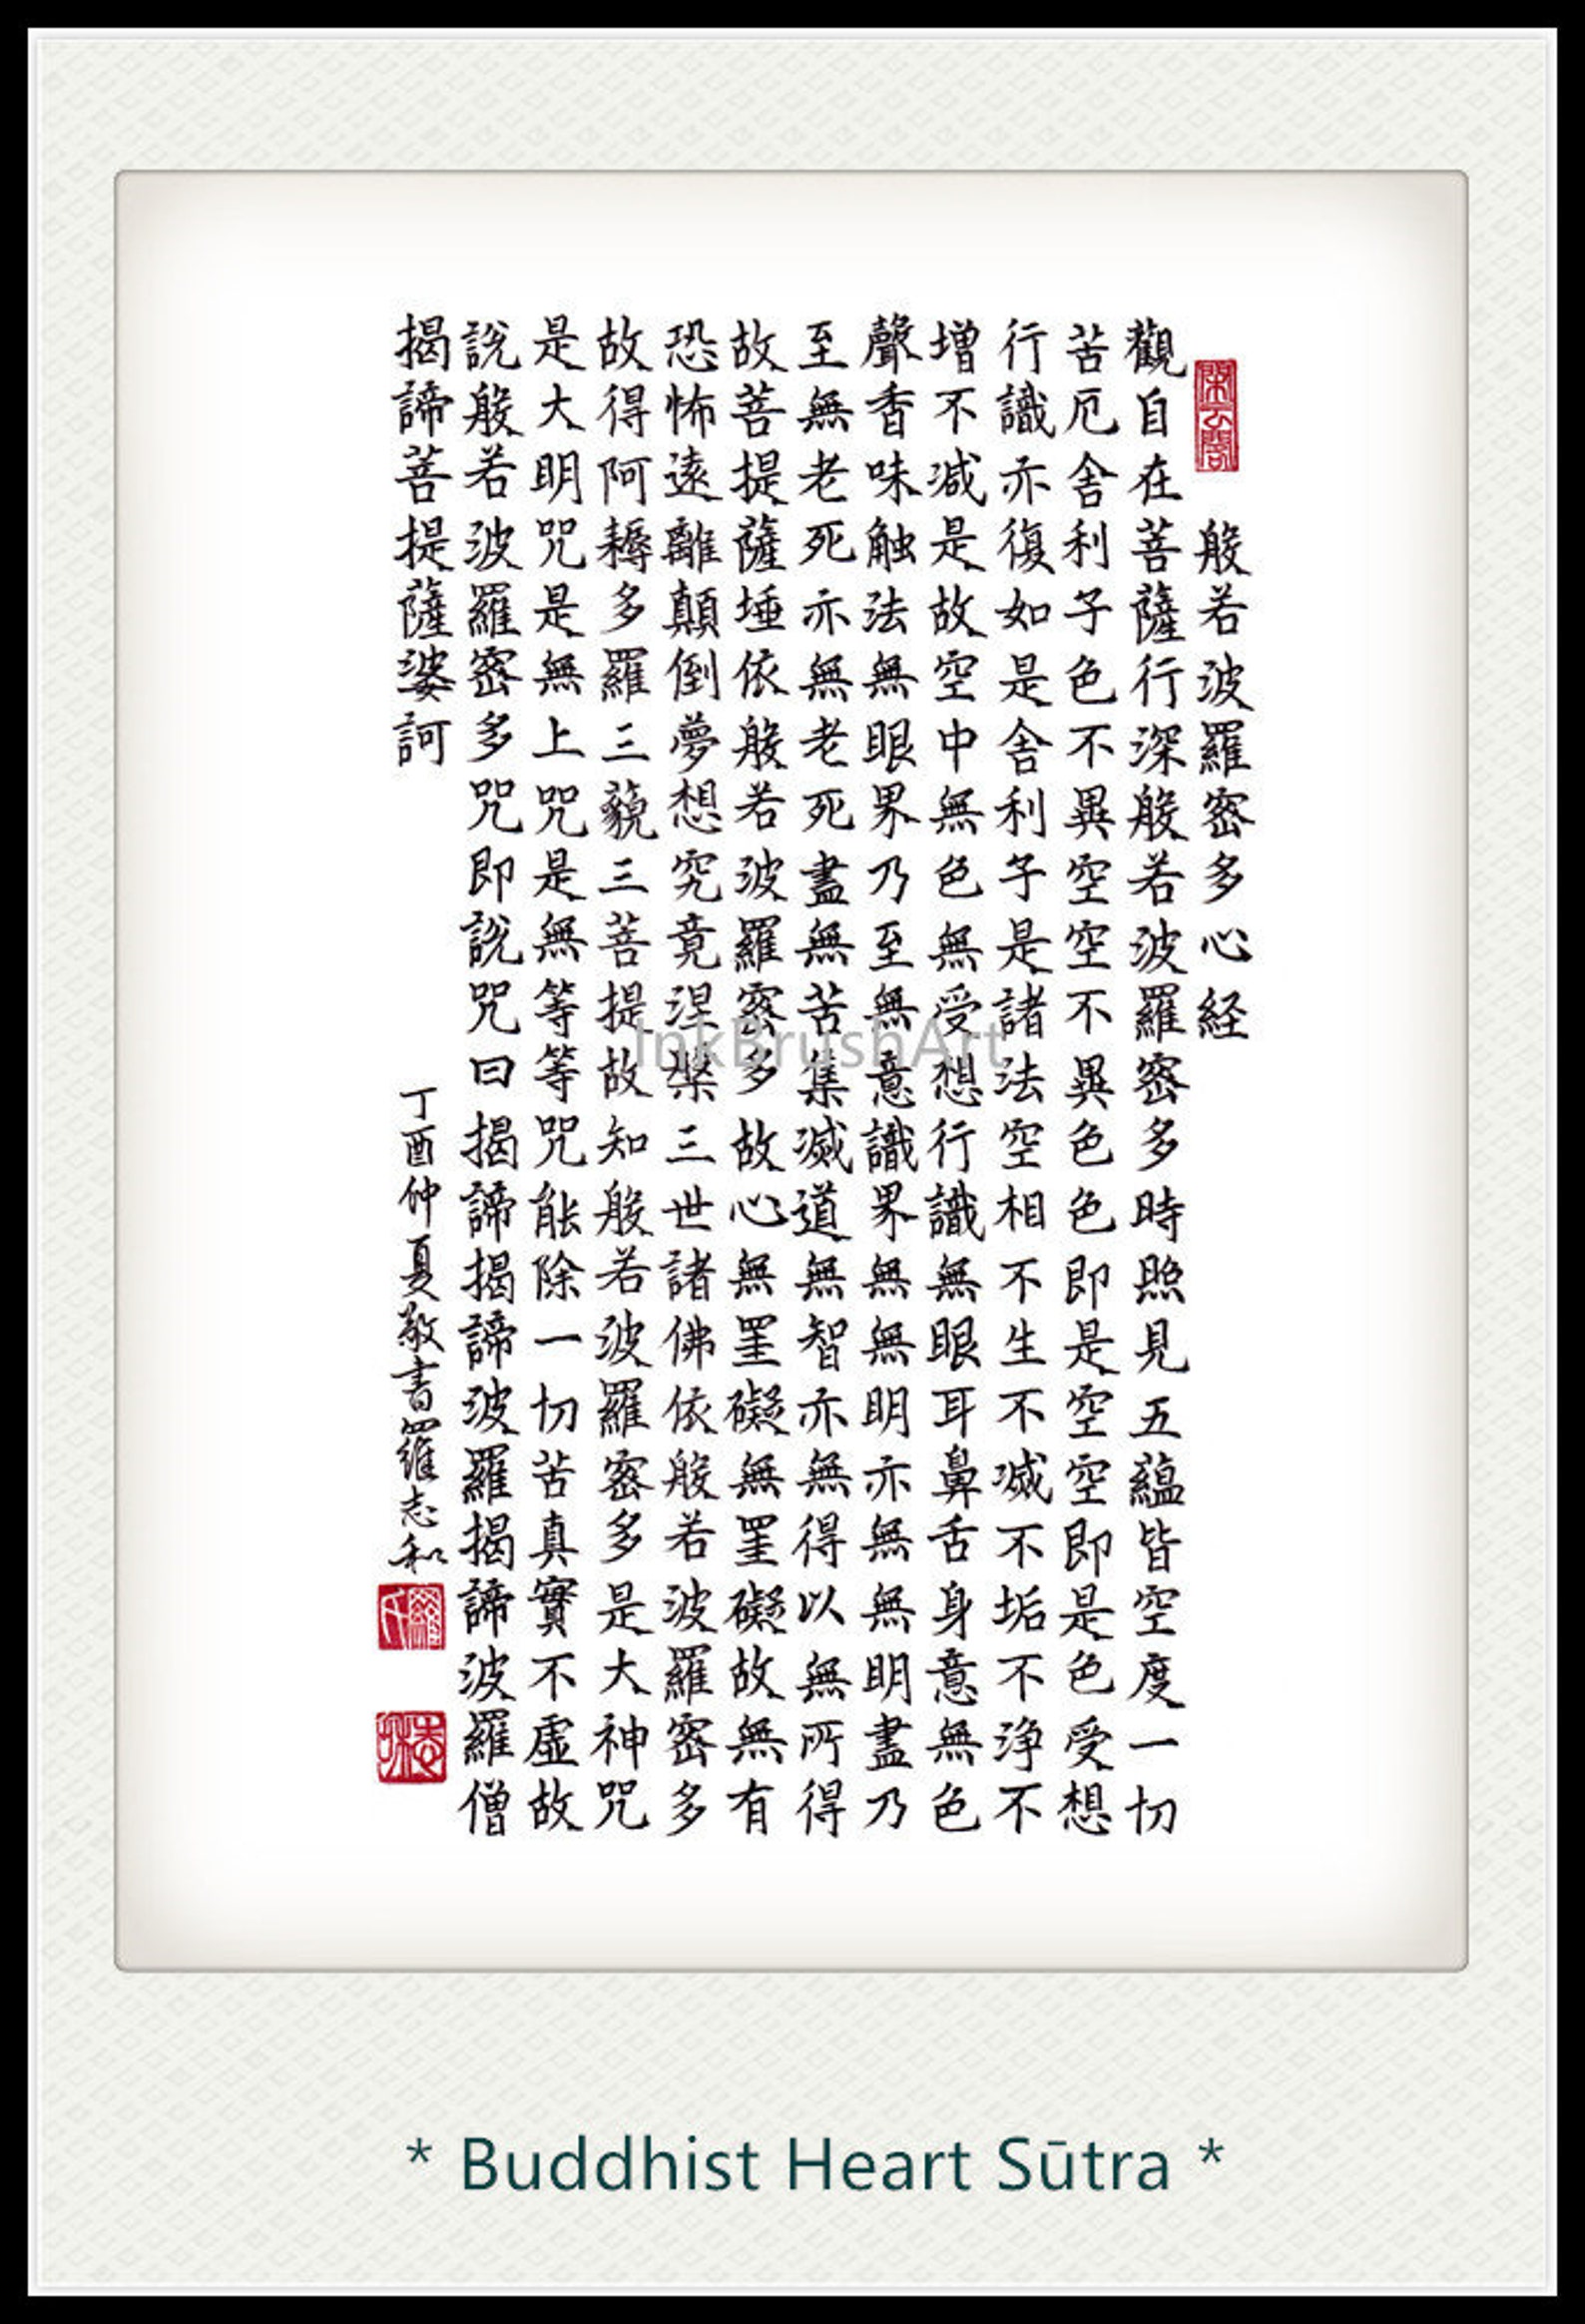 般若波羅密多心経
觀自在菩薩行深般若波羅密多時照見五蘊皆空度一切
苦厄舍利子色不異空空不異色色即是空空即是色受想
行識亦復如是舍利子是諸法空相不生不滅不垢不浄不
增不減是故空中無色無受想行識無眼耳鼻舌身意無色
聲香味触法無眼界乃至無意識界無無明亦無無明盡乃
至無老死亦無老死盡無苦集滅道無智亦無得以無所得
故菩提薩埵依般若波羅密多故心無罣礙無罣礙故無有
恐怖遠離顛倒夢想究竟涅槃三世諸佛依般若波羅密多
故得阿耨多羅三藐三菩提故知般若波羅密多是大神咒
是大明咒是無上咒是無等等咒能除一切苦真實不虛故
說般若波羅密多咒即說咒曰揭諦揭諦波羅揭諦波羅僧
揭諦菩提薩婆訶
丁酉仲夏敬書羅志和
羅氏
志和
InkBrushArt
* Buddhist Heart Sūtra *